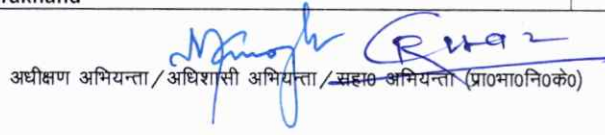 अधीक्षण अभियन्ता / अधिशासी अभियन्ता / सहा० अभियन्ता (प्रा०मा०नि०के०)